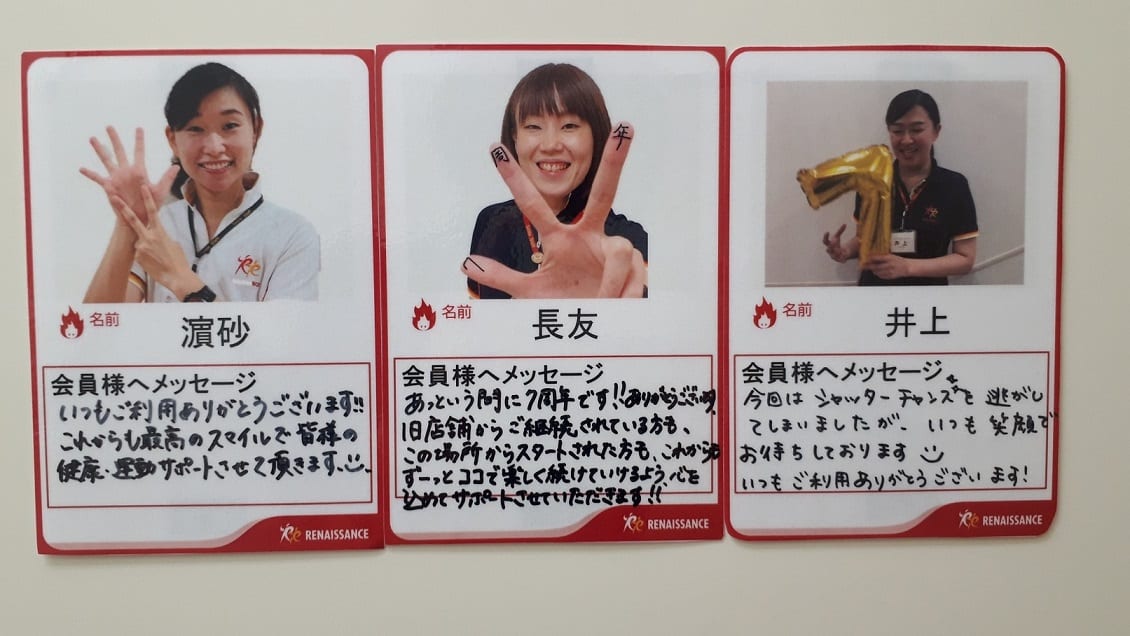 名前
濵砂
会員様へメッセージ
いつもご利用ありがとうございます!!
これからも最高のスマイルで皆様の
健康・運動サポートさせて頂きます
RENAISSANCE
周
年
名前
長友
会員様へメッセージ
あっという間に7周年です!!ありがとうございます
旧店舗からご継続されている方も、
この場所からスタートされた方も、これからも
ずーっとココで楽しく続けていけるよう、心を
込めてサポートさせていただきます!!
RENAISSANCE
井上
名前
井上
会員様へメッセージ
今回はシャッターチャンスを逃がし
てしまいましたが、いつも笑顔で
お待ちしております
いつもご利用ありがとうございます!
RENAISSANCE